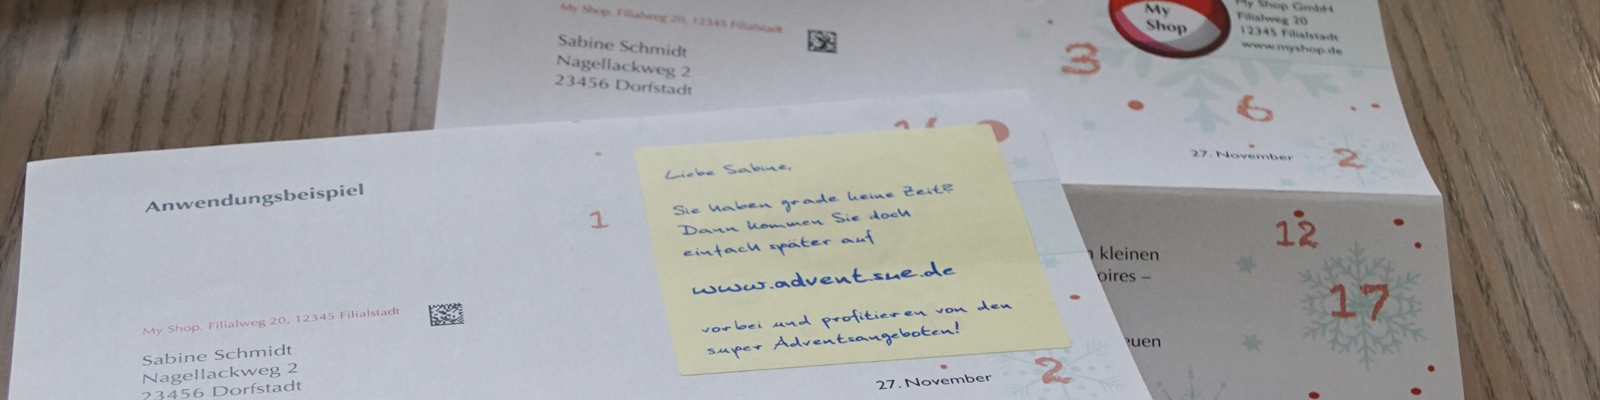 My Shop, Filialweg 20, 12345 Filialstadt
Sabine Schmidt
Nagellackweg 2
23456 Dorfstadt
My
Shop
My Shop GmbH
Filialweg 20
12345 Filialstadt
www.myshop.de
3
6
27. November
2
12
17
kleinen
oires –
euen
Anwendungsbeispiel
1
My Shop, Filialweg 20, 12345 Filialstadt
Sabine Schmidt
Nagellackweg 2
23456 Dorfstadt
Liebe Sabine,
Sie haben grade keine Zeit?
Dann kommen Sie doch
einfach später auf
www.advent.sue.de
vorbei und profitieren von den
super Adventsangeboten!
27. November
2